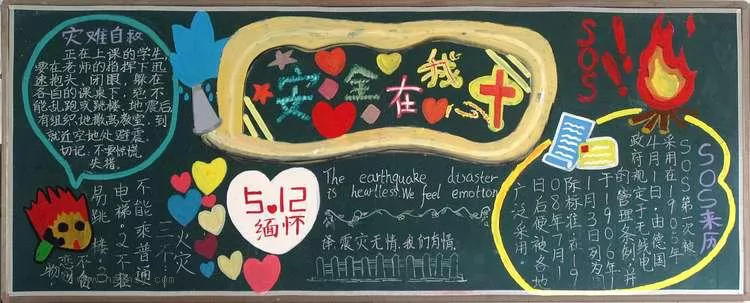 灾难自救
正在上课的学生
要在老师的指挥下迅
速抱头、闭眼、躲在
各自的课桌下,绝不
能乱跑或跳楼,地震后
有组织地撤离教室,到
就近空地处避震。
切记:不要惊慌
失措。
安全在我心
SOS!!!
5.12
缅怀
The earthquake disaster
is heartless. We feel emotion
译:震灾无情,我们有情。
火灾
三不
不能乘普通
电梯。2不轻
易跳楼。3不贪
恋财物。
SOS来历
SOS第一次被
采用在1905年
4月1日,由德国
政府规定于无线电
的管理条例,并
于1906年1
1月3日列为国
际标准。在19
08年7月1
日后便被各地
广泛采用。